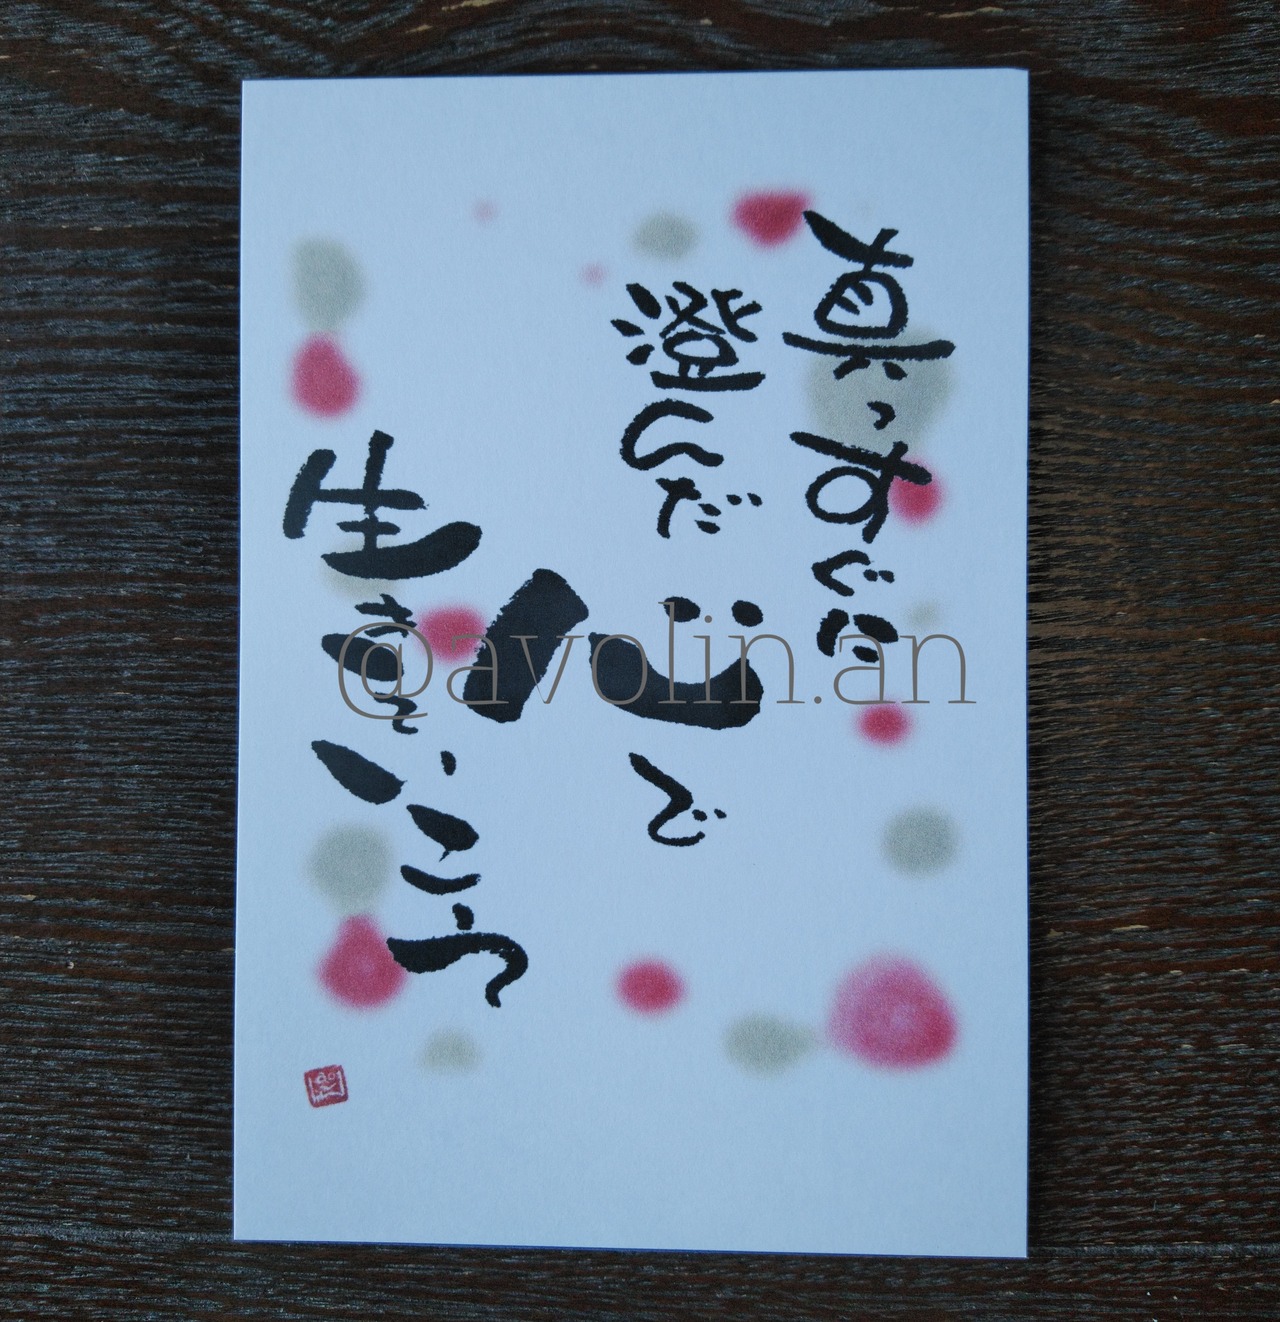 真っすぐに
澄んだ心で
生きていこう
@avolin.an